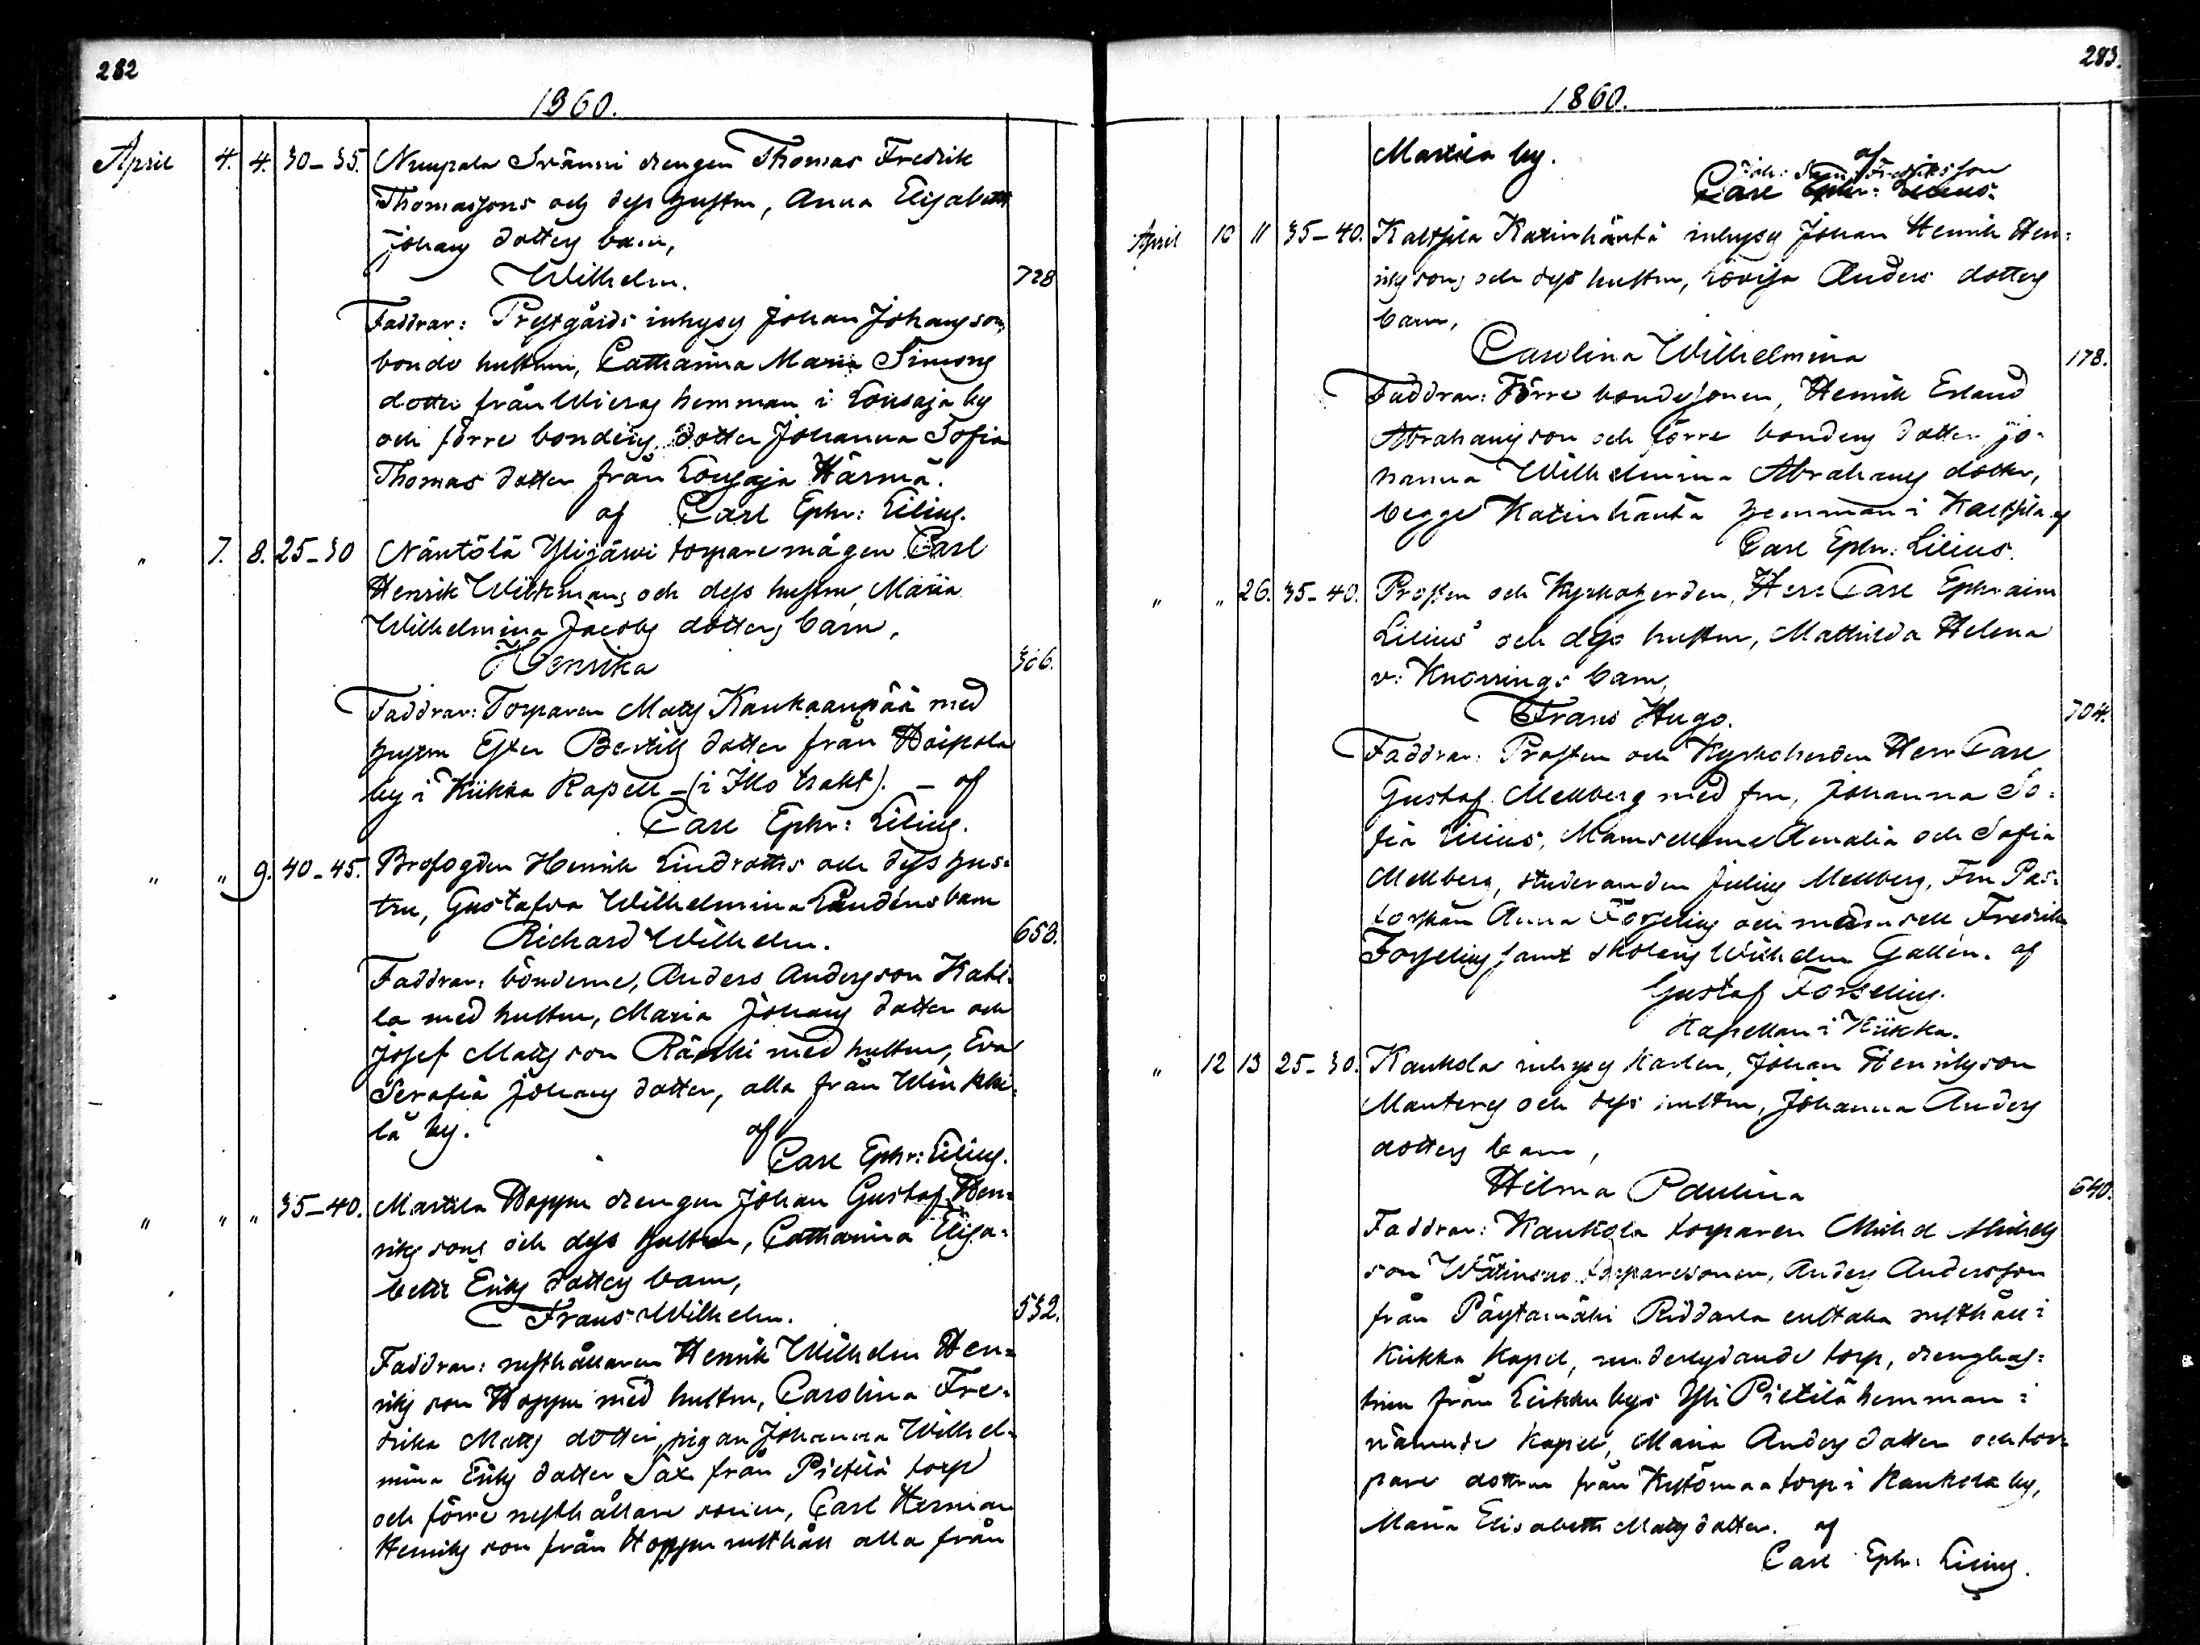 282
1860.
April 4. 4. 30-35. Nuupala Svänni drengen Thomas Fredrik
Thomassons och dess hustru, Anna Elisabeth
Johans dotters barn,
Wilhelm. 728
Faddrar: Prestgårds inhyses Johan Johansson,
bonde hustrun, Catharina Maria Simons
dotter från Wieras hemman i Lousaja by
och förre bondens dotter Johanna Sofia
Thomas dotter från Lousaja Härmä.
af Carl Ephr: Lilius.
" 7. 8. 25-30 Näntölä Ylijärvi torpare mågen Carl
Henrik Wilkmans och dess hustru, Maria
Wilhelmina Jacobs dotters barn,
Henrika 306.
Faddrar: Torparen Matts Kankaanpää med
hustru Ester Bertils dotter från Haipola
by i Kiikka Kapell - (i Illo trakt). - af
Carl Ephr: Lilius.
" " 9. 40-45. Brofogden Henrik Lindroths och dess hus-
tru, Gustafva Wilhelmina Landéns barn
Richard Wilhelm. 658.
Faddrar: bönderne, Anders Andersson Kahi-
la med hustru, Maria Johans dotter och
Josef Mattsson Räikki med hustru, Eva
Serafia Johans dotter, alla från Winkki-
lä by. af
Carl Ephr: Lilius.
" " " 35-40. Marttila Hoppu drengen Johan Gustaf Hen-
rikssons och dess hustru, Catharina Elisa-
beth Eriks dotters barn,
Frans Wilhelm. 532.
Faddrar: rusthållaren Henrik Wilhelm Hen-
riksson Hoppu med hustru, Carolina Fre-
drika Matts dotter, pigan Johanna Wilhel-
mina Eriks dotter Sax från Pietilä torp
och förre rusthållare sonen, Carl Herman
Henriksson från Hoppu rusthåll alla från
283.
1860.
Marttila by. af
Carl Ephr: Lilius.
April 10 11 35-40. Kaltsila Katinhäntä inhyses Johan Henrik Hen-
rikssons och dess hustru, Lovisa Anders dotters
barn,
Carolina Wilhelmina 178.
Faddrar: Förre bondesonen, Henrik Erland
Abrahamsson och förre bondens dotter Jo-
hanna Wilhelmina Abrahams dotter,
begge Katinhäntä hemman i Kaltsila af
Carl Ephr: Lilius.
" " 26. 35-40. Prosten och Kyrkoherden, Herr Carl Ephraim
Lilius' och dess hustru, Mathilda Helena
v: Knorrings barn,
Frans Hugo. 704.
Faddrar: Prosten och Kyrkoherden Herr Carl
Gustaf Mellberg med fru, Johanna So-
fia Lilius, Mamsellerne Amalia och Sofia
Mellberg, studeranden Julius Mellberg, Fru Pas-
torskan Anna Forselius och mamsell Fredrika
Forselius, samt skolens Wilhelm Gallén. af
Gustaf Forselius.
Kapellan i Kiikka.
" 12 13 25-30. Kaukola inhyses karlen, Johan Henriksson
Manteres och dess hustru, Johanna Anders
dotters barn,
Hilma Paulina 640.
Faddrar: Kaukola torparen Michel Michels
son Wätinens torparesonen, Anders Andersson
från Päytämäki Riddarla eustaka rusthåll i
Kiikka Kapell, underlydande torp, drenghus-
trun från Leikku bys Yli Pietilä hemman i
nämnde Kapell, Maria Anders dotter och tor-
pare dottren från Kylömaa torp i Kaukola by,
Maria Elisabeth Matts dotter. af
Carl Ephr: Lilius.